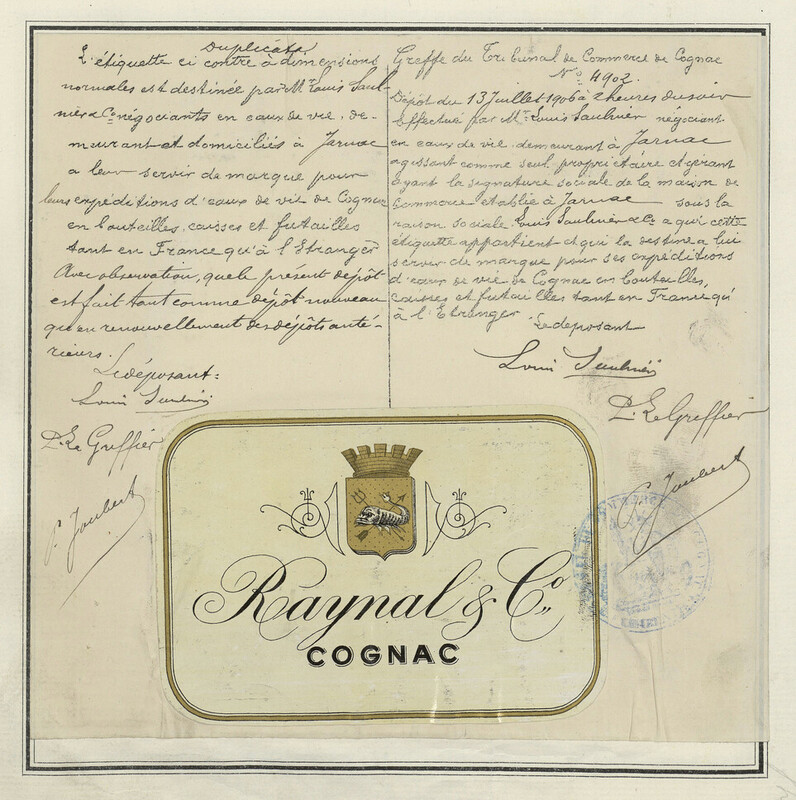 Duplicata
L'étiquette ci contre à dimensions
normales est destinée par Mr Louis Saul-
nier & Co négociants en eaux de vie, de-
meurant et domiciliés à Jarnac
a leur servir de marque pour
leurs expéditions d'eaux de vie de Cognac
en bouteilles, caisses et futailles
tant en France qu'à l'Etranger
Avec observation, que le présent dépôt
est fait tant comme dépôt nouveau
qu'en renouvellement des dépôts anté-
rieurs.
Le déposant:
Louis Saulnier
P. Le Greffier
P. Joubert
Greffe du Tribunal de Commerce de Cognac
No 4902.
Dépôt du 13 Juillet 1906 à 2 heures du soir
Effectué par Mr Louis Saulnier négociant
en eaux de vie demeurant à Jarnac
agissant comme seul propriétaire et gérant
ayant la signature sociale de la maison de
commerce établie à Jarnac sous la
raison sociale Louis Saulnier & Co a qui cette
étiquette appartient et qui la destine a lui
servir de marque pour ses expéditions
d'eaux de vie de Cognac en bouteilles,
caisses et futailles tant en France qu'
à l'Etranger
Le déposant
Louis Saulnier
P. Le Greffier
P. Joubert
Raynal & Co
COGNAC